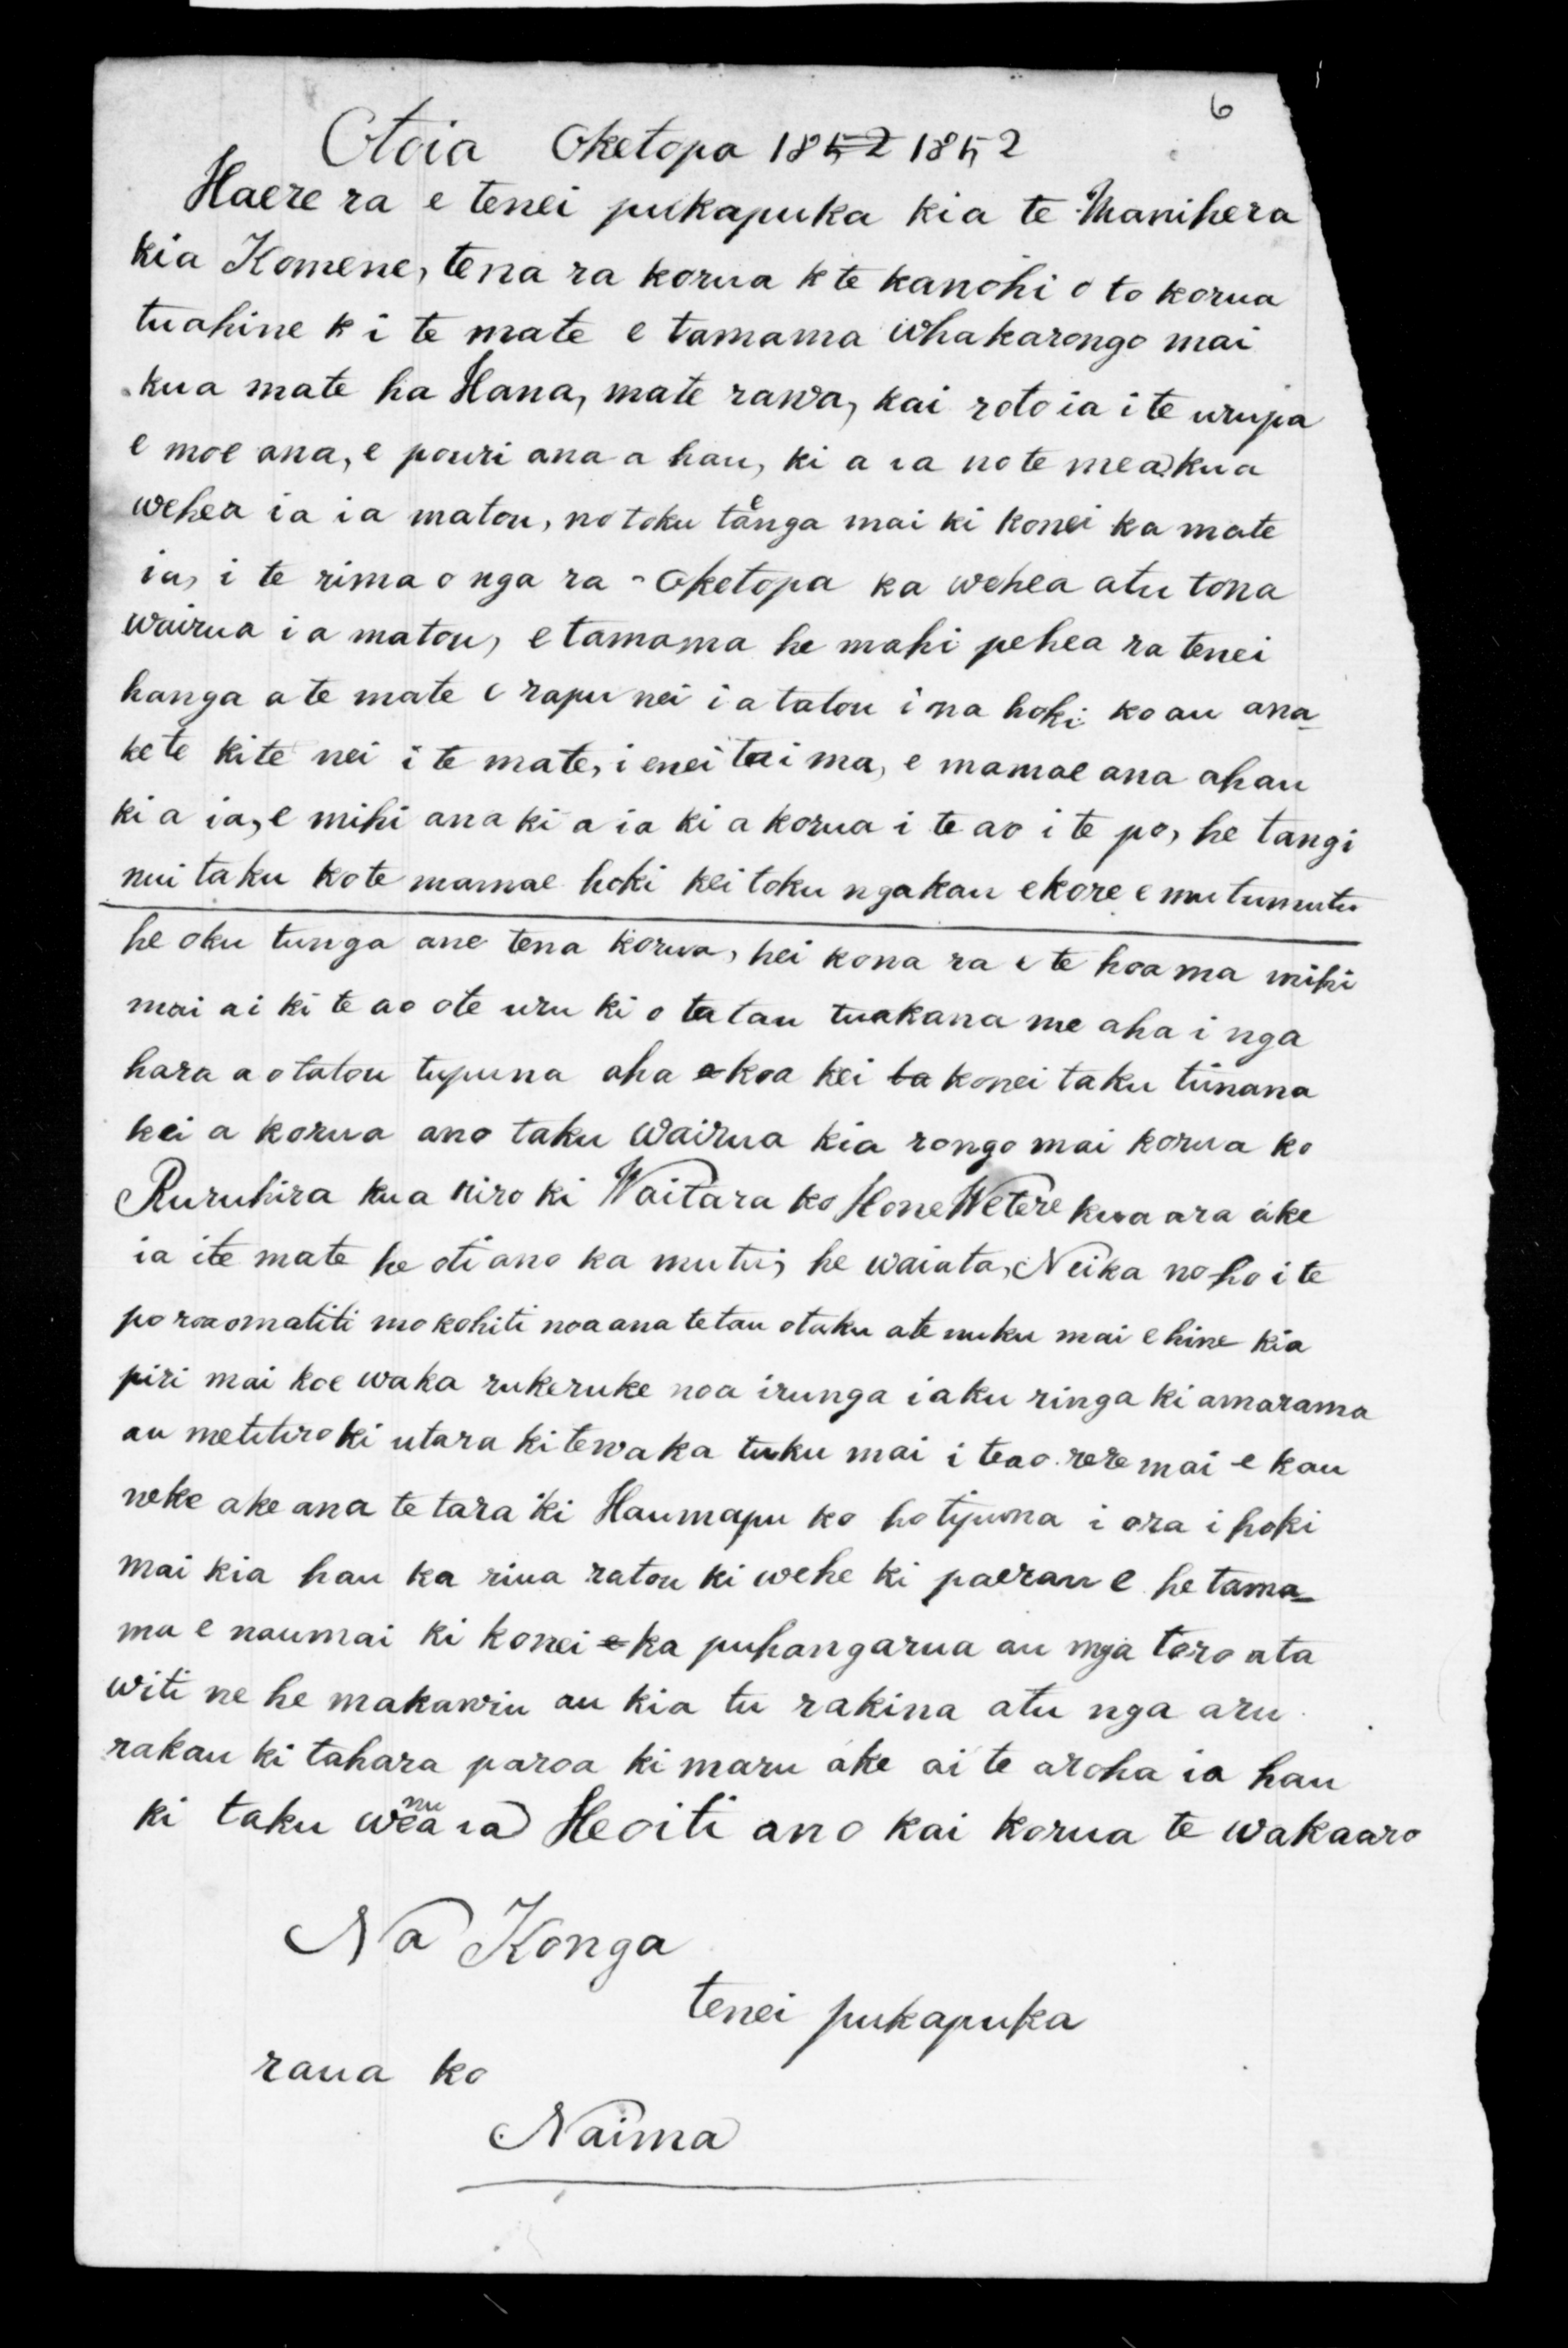 6
Otoia Oketopa 1852 1852
Haere ra e tenei pukapuka kia te Manihera
kia Komene, tena ra korua k te kanohi o to korua
tuahine k i te mate e tamama whakarongo mai
kua mate ha Hana, mate rawa, kai roto ia i te urupa
e moe ana, e pouri ana a hau, ki a ia no te mea kua
wehea ia ia matou, no toku taenga mai ki konei ka mate
ia, i te rima o nga ra - Oketopa ka wehea atu tona
wairua i a matou, e tamama he mahi pehea ra tenei
hanga a te mate e rapu nei i a tatou i na hoki ko au ana
ke te kite nei i te mate, i enei taima, e mamae ana ahau
ki a ia, e mihi ana ki a ia ki a korua i te ao i te po, he tangi
nui taku ko te mamae hoki kei toku ngakau ekore e mutumutu
he oku tunga ano tena korua, hei kona ra e te hoa ma mihi
mai ai ki te ao ote uru ki o tatau tuakana me aha i nga
hara a o tatou tupuna aha e koa kei ta konei taku tinana
kei a korua ano taku wairua kia rongo mai korua ko
Ruruhira kua riro ki Waitara ko Hone Wetere kua ara ake
ia ite mate he oti ano ka mutu, he waiata, Neika noho i te
po roa omatiti mo kohiti noa ana te tau otaku ate nuku mai e hine kia
piri mai koe waka rukeruke noa irunga i aku ringa ki amarama
au me titiro ki utara ki tewaka tuku mai i teao rere mai e kau
neke ake ana te tara ki Haumapu ko ho tipuna i ora i hoki
mai kia hau ka riua ratou ki wehe ki paerau e he tama
ma e naumai ki konei e ka puhangarua au toro ata
witi ne he makawiu au kia tu rakina atu nga aru
rakau ki tahara paroa ki maru ake ai te aroha ia hau
ki taku wenua ia Heoiti ano kai korua te wakaaro
Na Konga
tenei pukapuka
raua ko
Naima